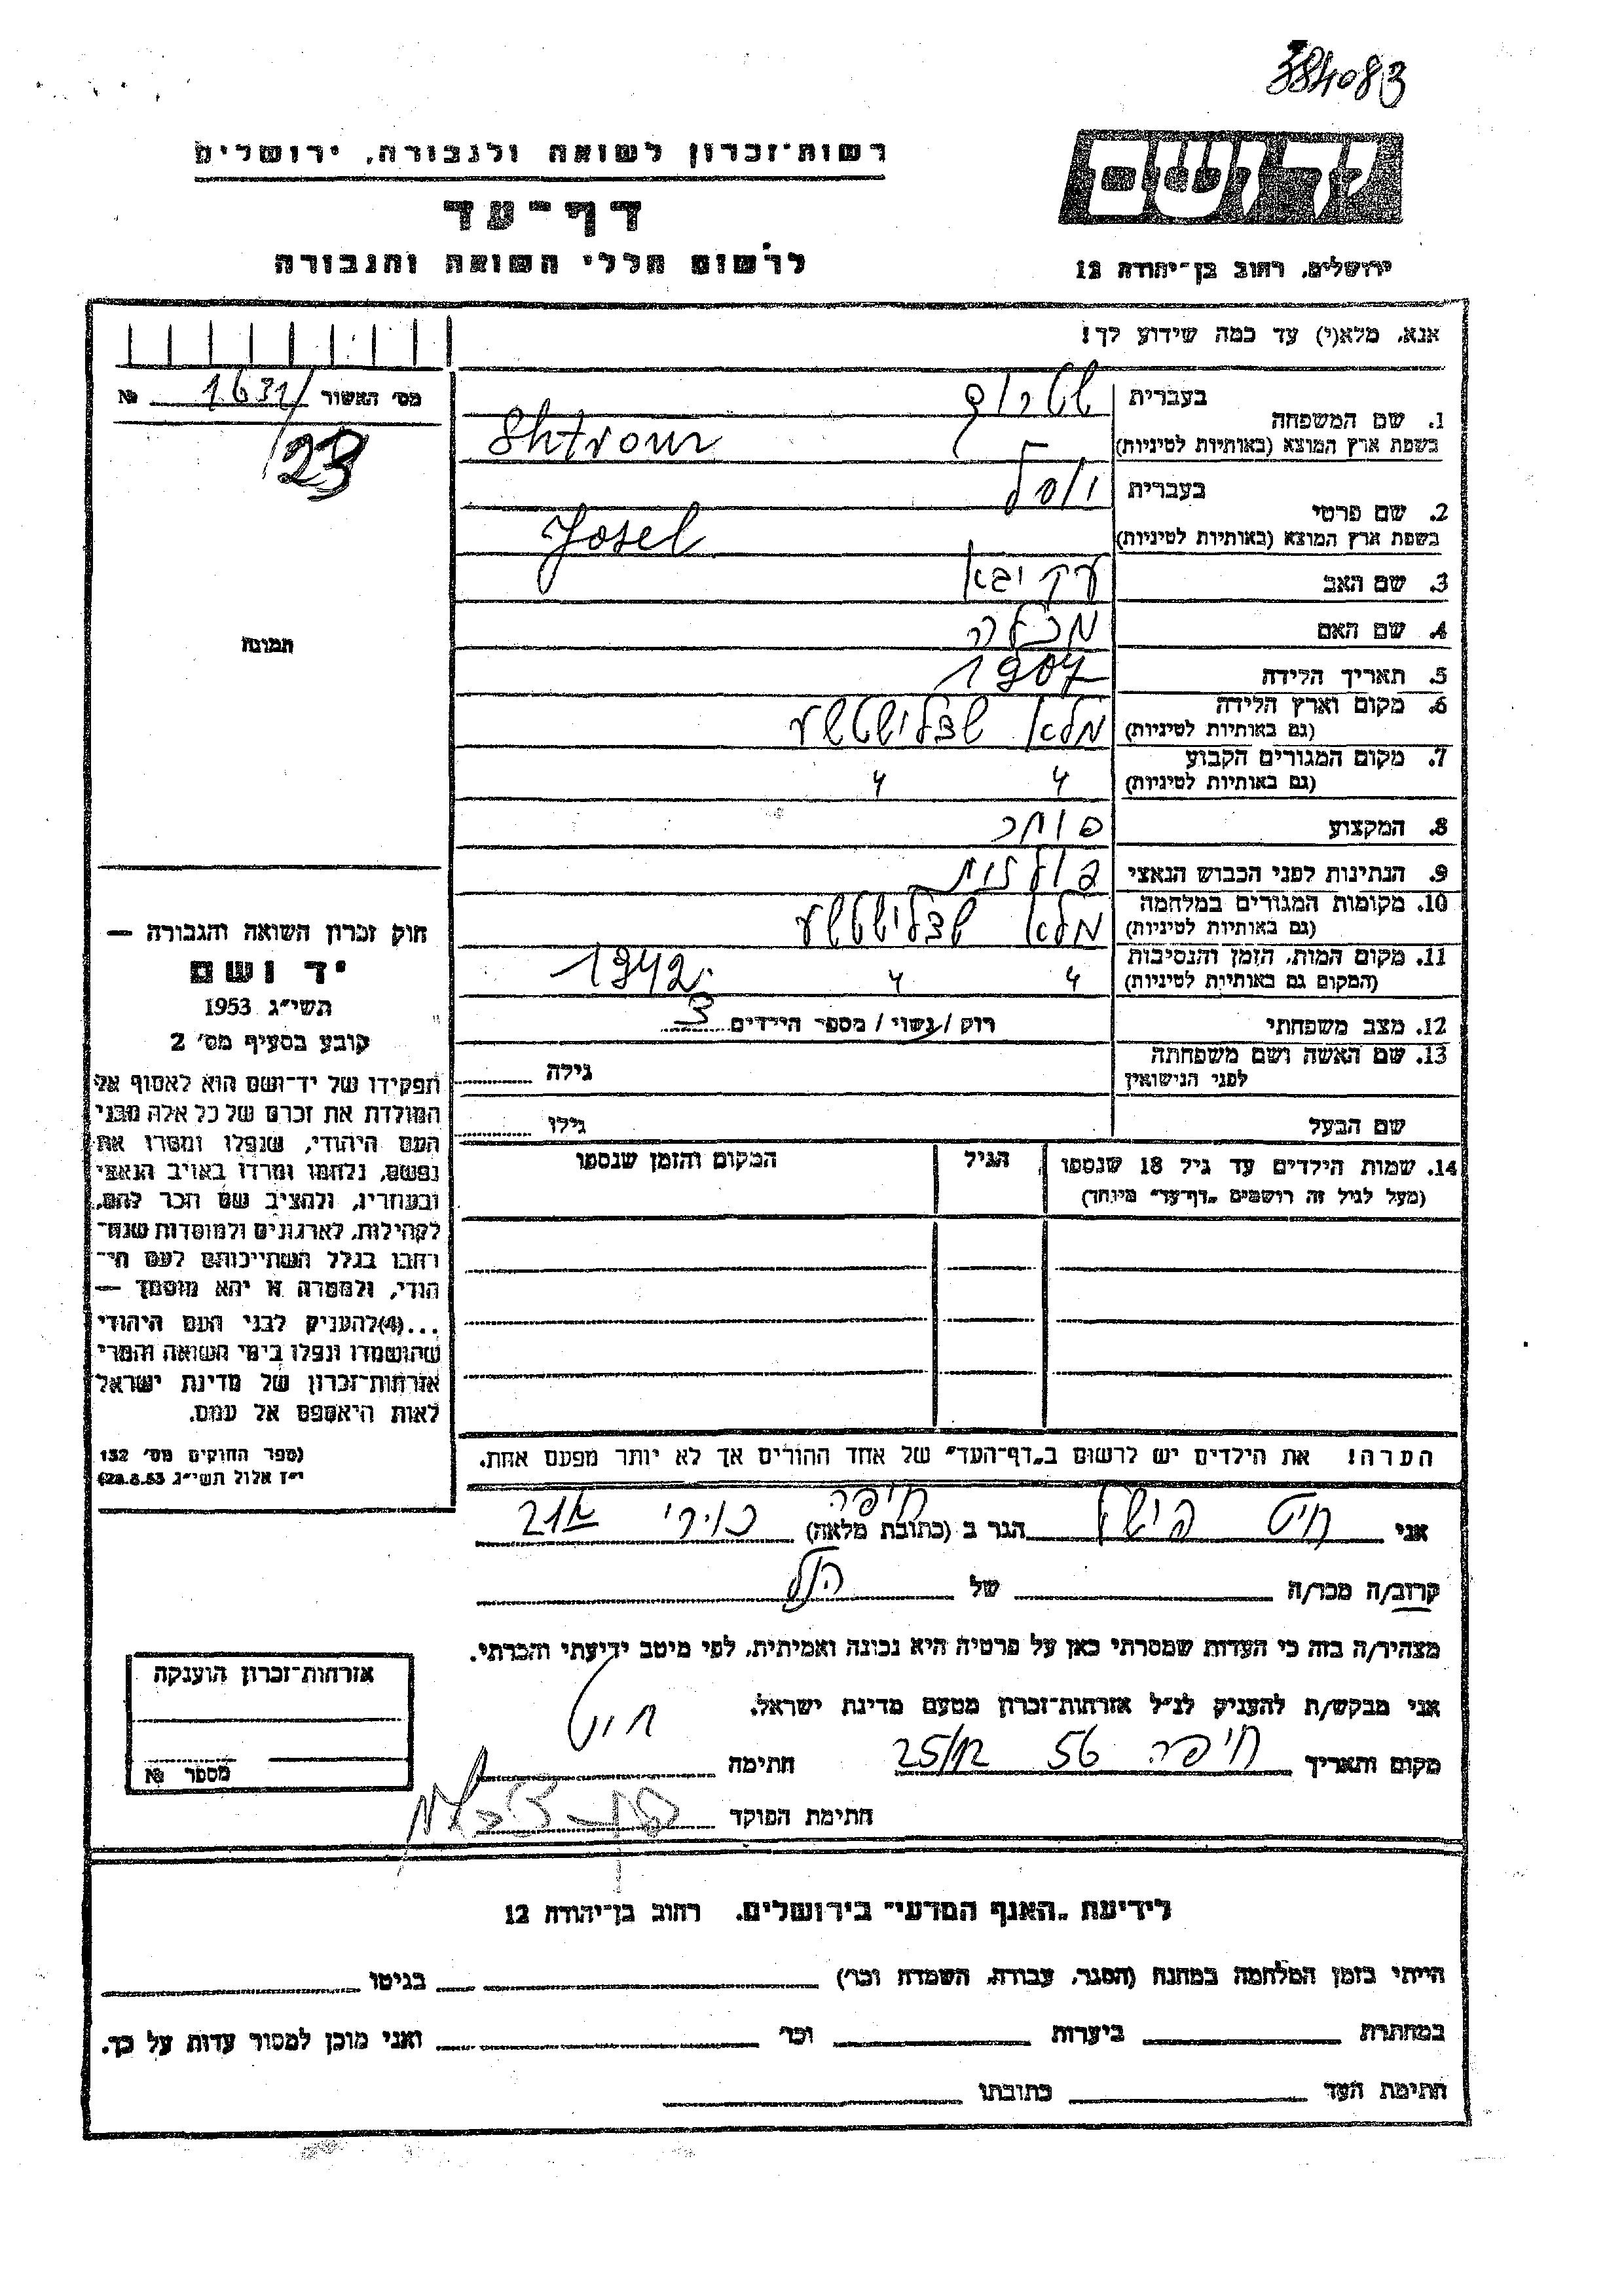 384083
רשות־זכרון לשואה ולגבורה, ירושלים
דף־עד
לרשום חללי השואה והגבורה
יד ושם
ירושלים, רחוב בן־יהודה 12
אנא, מלא(י) עד כמה שידוע לך!
מס׳ האשור 1631/ №
123
תמונה
בעברית
1. שם המשפחה
בשפת ארץ המוצא (באותיות לטיניות) Shtroum
2. שם פרטי
בעברית יוסל
בשפת ארץ המוצא (באותיות לטיניות) Josel
3. שם האב עקיבא
4. שם האם מכלה
5. תאריך הלידה 1907
6. מקום וארץ הלידה
(גם באותיות לטיניות) מלא
7. מקום המגורים הקבוע
(גם באותיות לטיניות) " "
8. המקצוע סוחר
9. הנתינות לפני הכבוש הנאצי פולנית
10. מקומות המגורים במלחמה
(גם באותיות לטיניות) מלא
11. מקום המות, הזמן והנסיבות
(המקום גם באותיות לטיניות) " " 1942
12. מצב משפחתי רוק / נשוי / מספר הילדים 3
13. שם האשה ושם משפחתה
לפני הנישואין גילה
שם הבעל גילו
14. שמות הילדים עד גיל 18 שנספו הגיל המקום והזמן שנספו
(מעל לגיל זה רושמים „דף־עד״ מיוחד)
הערה! את הילדים יש לרשום ב„דף־העד״ של אחד ההורים אך לא יותר מפעם אחת.
חוק זכרון השואה והגבורה —
יד ושם
תשי״ג 1953
קובע בסעיף מס׳ 2
תפקידו של יד־ושם הוא לאסוף אל
המולדת את זכרם של כל אלה מבני
העם היהודי, שנפלו ומסרו את
נפשם, נלחמו ומרדו באויב הנאצי
ובעוזריו, ולהציב שם וזכר להם,
לקהילות, לארגונים ולמוסדות שנח־
רחבו בגלל השתייכותם לעם הי־
הודי, ולמטרה זו יהא מוסמך —
...(4)להעניק לבני העם היהודי
שהושמדו ונפלו בימי השואה והמרי
אזרחות־זכרון של מדינת ישראל
לאות היאספם אל עמם.
(ספר החוקים מס׳ 132
י״ז אלול תשי״ג 28.8.53)
אני חיט הגר ב (כתובת מלאה) חיפה
קרוב/ה מכר/ה של הנ״ל
מצהיר/ה בזה כי העדות שמסרתי כאן על פרטיה היא נכונה ואמיתית, לפי מיטב ידיעתי והכרתי.
אני מבקש/ת להעניק לנ״ל אזרחות־זכרון מטעם מדינת ישראל.
מקום ותאריך חיפה 56 25/12 חתימה חיט
חתימת הפוקד
אזרחות־זכרון הוענקה
מספר №
לידיעת „האגף המדעי״ בירושלים, רחוב בן־יהודה 12
הייתי בזמן המלחמה במחנה (הסגר, עבודה, השמדה וכו׳) בגיטו
במחתרת ביערות וכו׳ ואני מוכן למסור עדות על כך.
חתימת העד כתובתו